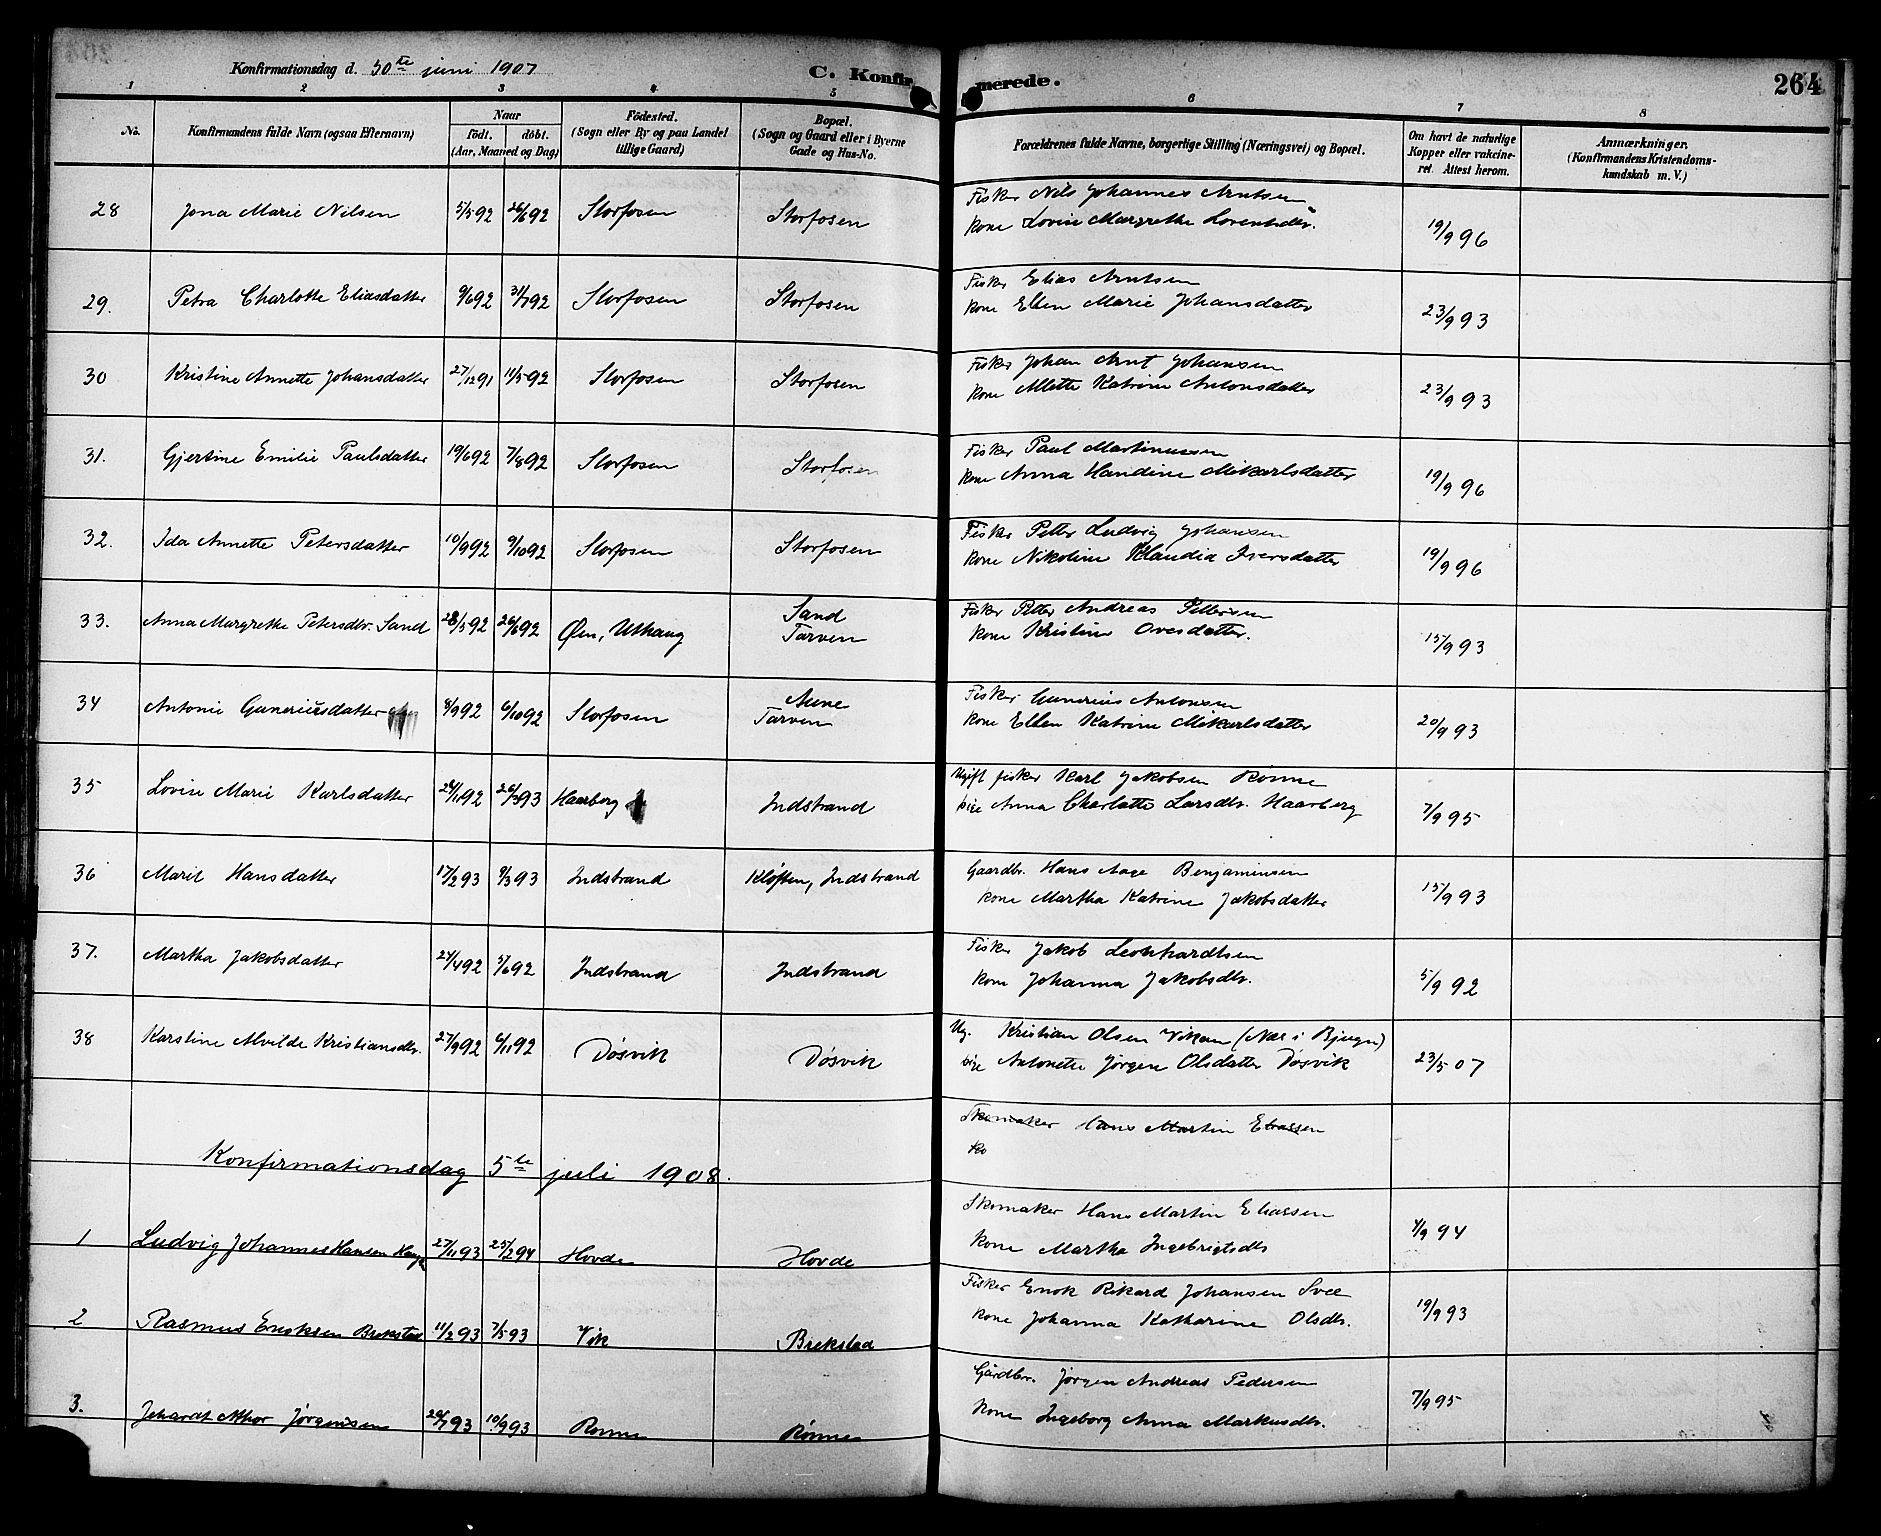 Konfirmationsdag d. 30te juni 1907
C. Konfirmerede.
264
1 2 3 4 5 6 7 8
No.
Konfirmandens fulde Navn (ogsaa Efternavn)
Naar
født. døbt.
(Aar, Maaned og Dag)
Fødested.
(Sogn eller By og paa Landet
tillige Gaard)
Bopæl.
(Sogn og Gaard eller i Byerne
Gade og Hus-No.
Forældrenes fulde Navne, borgerlige Stilling (Næringsvei) og Bopæl.
Om havt de naturlige
Kopper eller vakcine-
ret. Attest herom.
Anmærkninger.
(Konfirmandens Kristendoms-
kundskab m. V.)
28 Jona Marie Nilsen 5/5 92 26/6 92 Storfosen Storfosen
Fisker Nils Johannes Arntsen
kone Lovise Margrethe Lorentsdtr. 19/9 96
29. Petra Charlotte Eliasdatter 9/6 92 31/7 92 Storfosen Storfosen
Fisker Elias Arntsen
kone Ellen Marie Johansdatter 23/9 93
30 Kristine Annette Johansdatter 27/12 91 11/5 92 Storfosen Storfosen
Fisker Johan Arnt Johansen
kone Mette Katrine Antonsdatter 23/9 93
31. Gjertine Emilie Paulsdatter 19/6 92 7/8 92 Storfosen Storfosen
Fisker Paul Martinussen
kone Anna Handine Mikaelsdatter 19/9 96
32. Ida Annette Petersdatter 10/9 92 9/10 92 Storfosen Storfosen
Fisker Petter Ludvig Johansen
kone Nikoline Klaudia Iversdatter 19/9 96
33. Anna Margrethe Petersdtr. Sand 28/5 92 26/6 92 Øen, Uthaug Sand
Tarven
Fisker Petter Andreas Pettersen
kone Kristine Ovesdatter. 15/9 93
34 Antonie Guneriusdatter 8/9 92 6/10 92 Storfosen Aune
Tarven
Fisker Gunerius Antonsen
kone Ellen Katrine Mikaelsdatter 20/9 93
35 Lovise Marie Karlsdatter 24/11 92 26/3 93 Haarberg Indstrand
Ugift fisker Karl Jakobsen Rønne
pige Anna Charlotte Larsdtr. Haarberg 7/9 95
36 Marit Hansdatter 17/2 93 9/3 93 Indstrand Kløften, Indstrand
Gaardbr. Hans Aage Benjaminsen
kone Martha Katrine Jakobsdatter 15/9 93
37. Martha Jakobsdatter 24/4 92 5/6 92 Indstrand Indstrand
Fisker Jakob Leonhardtsen
kone Johanna Jakobsdtr. 5/9 92
38 Karstine Alvilde Kristiansdtr. 27/9 92 6/11 92 Døsvik Døsvik
Ug. Kristian Olsen Vikan (Nær i Bjugn)
pige Antonette Jørgen Olsdatter Døsvik 23/5 07
Skomaker Hans Martin Eliassen
ko
Konfirmationsdag 5te juli 1908.
1 Ludvig Johannes Hansen 27/11 93 25/2 94 Hovde Hovde
Skomaker Hans Martin Eliassen
kone Martha Ingebrigtsdtr 4/9 94
2 Rasmus Enoksen Brekstad 11/2 93 7/5 93 Vik Brekstad
Fisker Enok Rikard Johansen Svee
kone Johanna Katharina Olsdtr. 19/9 93
3. Athor Jørgensen 20/7 93 10/9 93 Rønne Rønne
Gårdbr. Jørgen Andreas Pedersen
kone Ingeborg Anna Markusdtr. 7/9 95